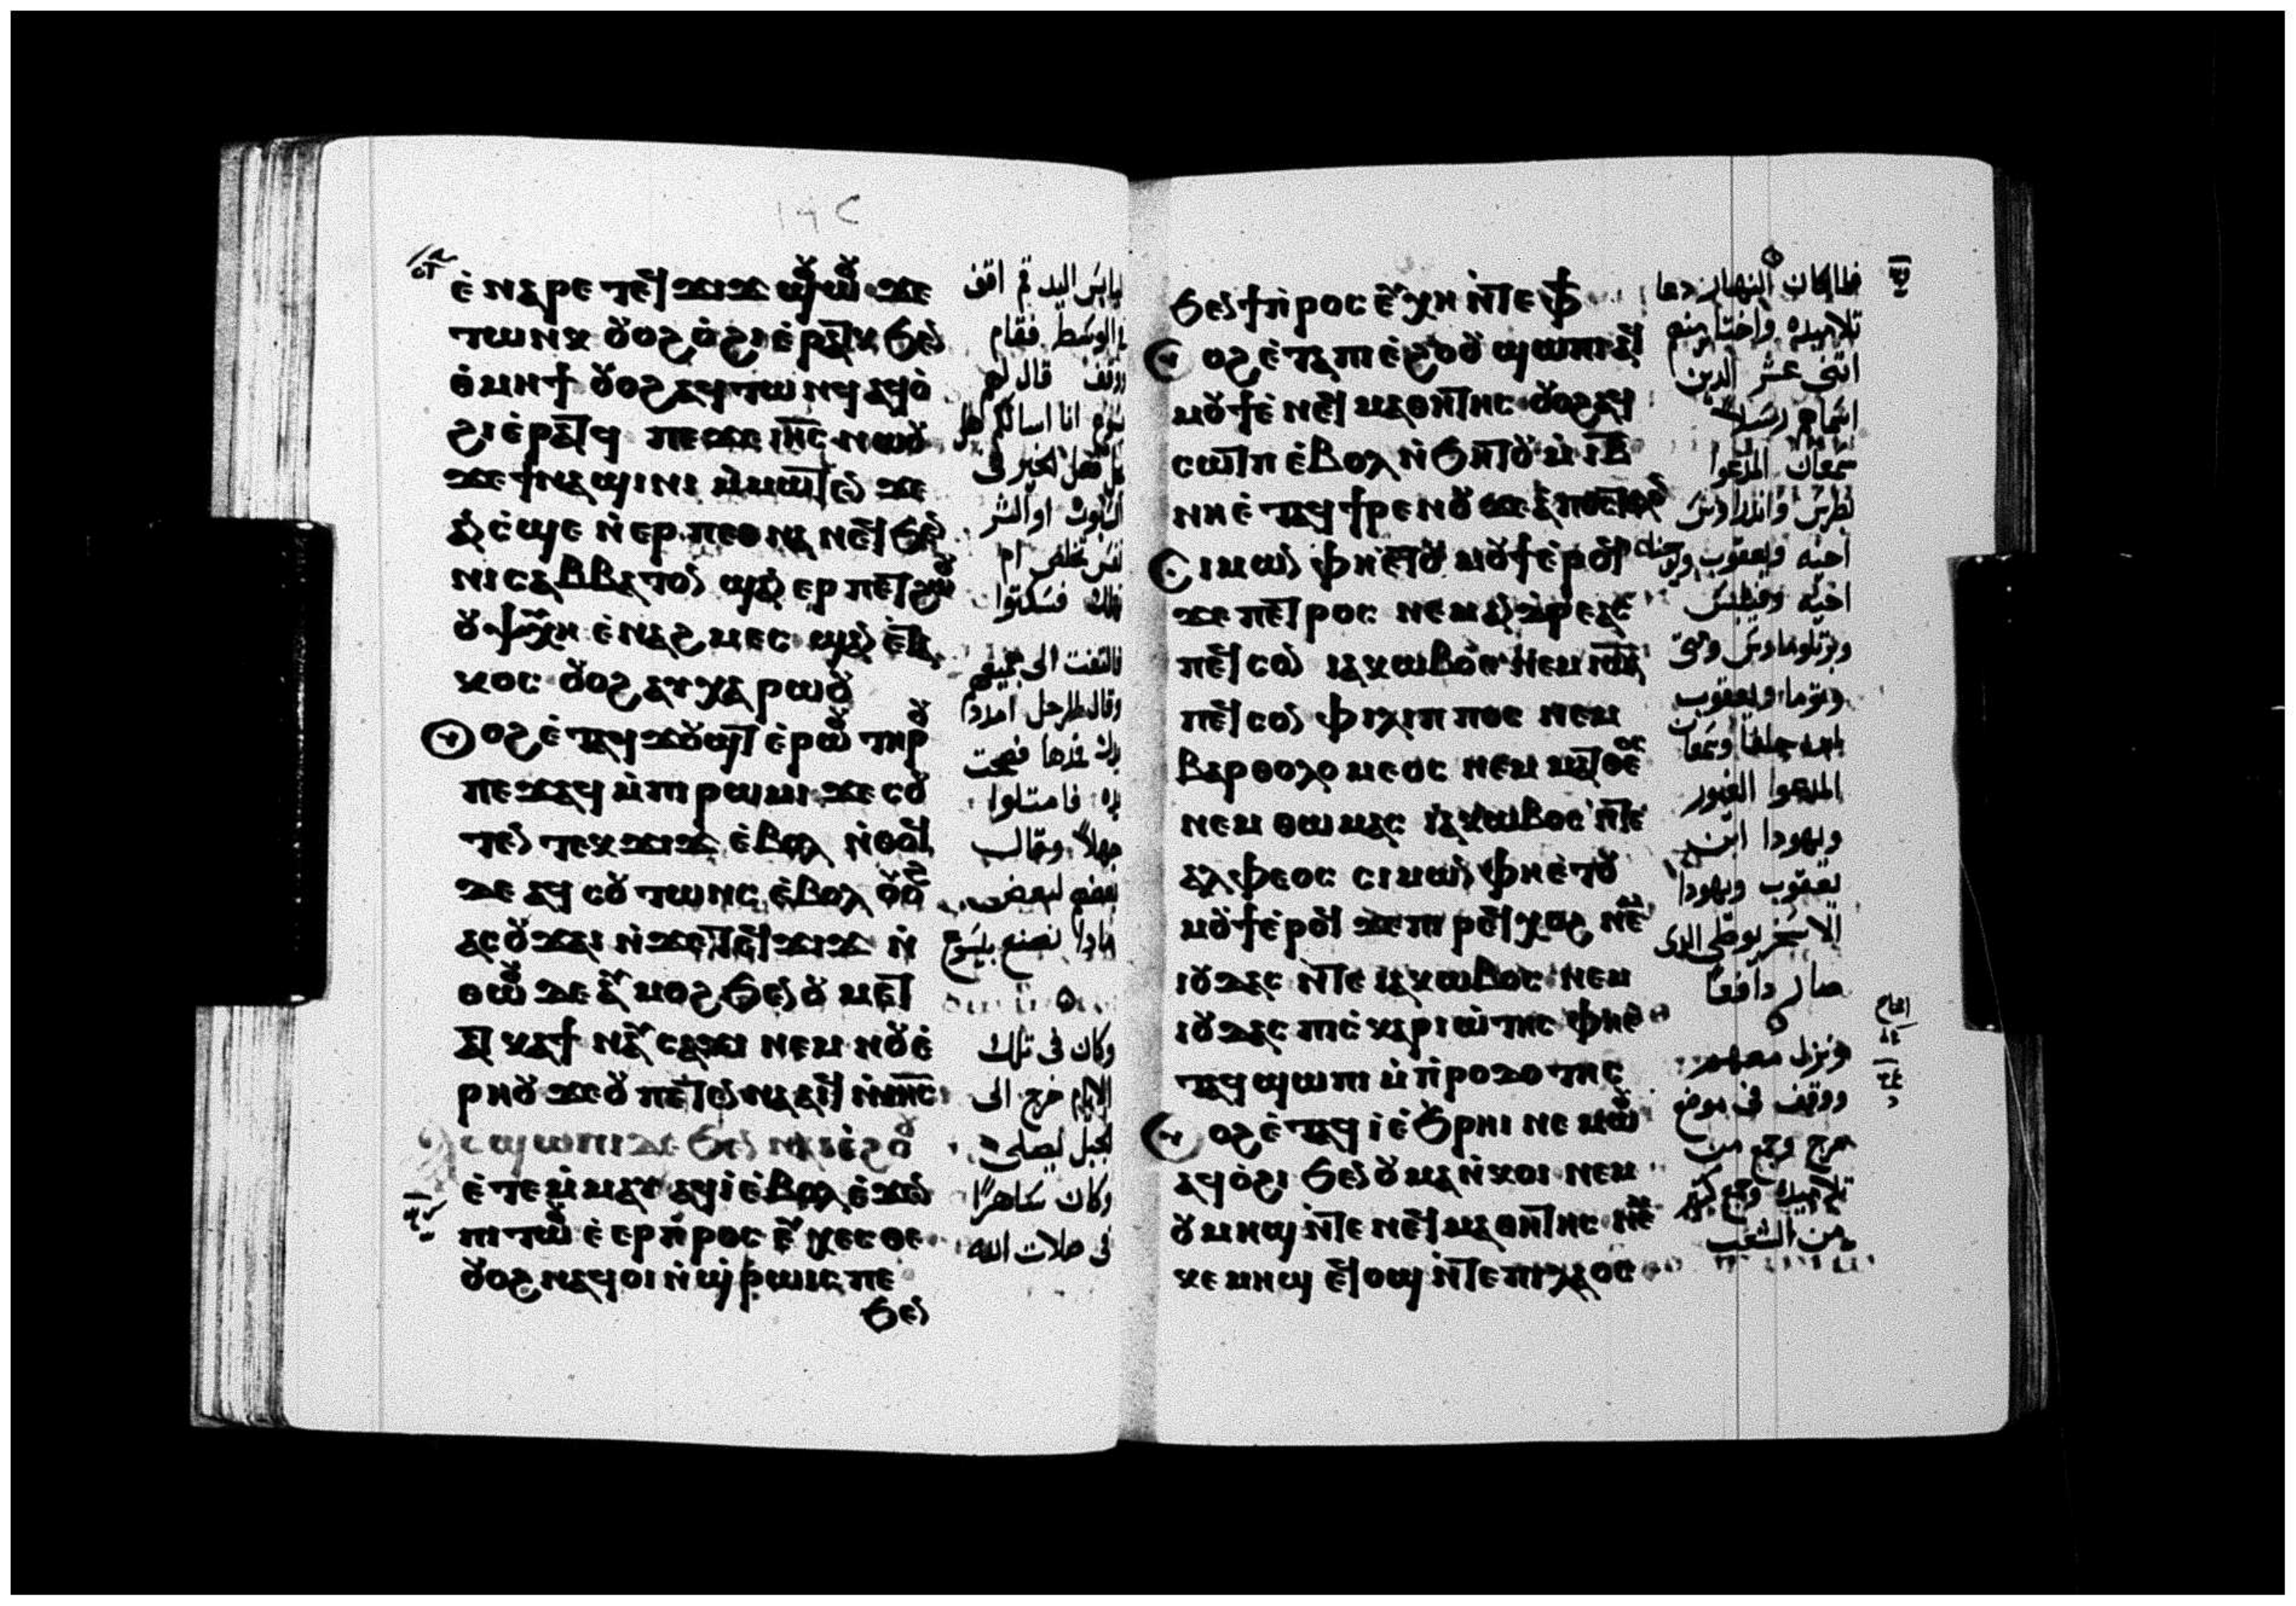 ⲉ̀ⲛⲁⲣⲉ ⲧⲉϥϫⲓϫ ϣⲟⲩⲱⲟⲩ ϫⲉ
ⲧⲱⲛⲕ ⲟⲩⲟϩ ⲟ̀ϩⲓ ⲉ̀ⲣⲁⲧⲕ ϧⲉⲛ
ⲑⲙⲏϯ ⲟⲩⲟϩ ⲁϥⲧⲱⲛϥ ⲁϥⲟ̀
ϩⲓ ⲉ̀ⲣⲁⲧϥ ⲡⲉϫⲉ ⲓⲏ̅ⲥ̅ ⲛⲱⲟⲩ
ϫⲉ ϯⲛⲁϣⲓⲛⲓ ⲙ̀ⲙⲱⲧⲉⲛ ϫⲉ
ⲁⲛ ⲥ̀ϣⲉ ⲛ̀ⲉⲣ ⲡⲉⲑⲛⲁⲛⲉϥ ϧⲉⲛ
ⲛⲓⲥⲁⲃⲃⲁⲧⲟⲛ ϣⲁⲛ ⲉⲣ ⲡⲉⲧϩⲱⲟⲩ
ⲟⲩⲯⲩⲭⲏ ⲉ̀ⲛⲁϩⲙⲉⲥ ϣⲁⲛ ⲉ̀ⲧⲁ
ⲕⲟⲥ ⲟⲩⲟϩ ⲁⲩⲭⲁⲣⲱⲟⲩ
ⲟⲩⲟϩ ⲉ̀ⲧⲁϥϫⲟⲩϣⲧ ⲉ̀ⲣⲱⲟⲩ ⲧⲏⲣⲟⲩ
ⲡⲉϫⲁϥ ⲙ̀ⲡⲓⲣⲱⲙⲓ ϫⲉ ⲥⲟⲩ
ⲧⲉⲛ ⲧⲉⲕϫⲓϫ ⲉ̀ⲃⲟⲗ ⲛ̀ⲑⲟϥ
ⲇⲉ ⲁϥⲥⲟⲩⲧⲱⲛⲥ ⲉ̀ⲃⲟⲗ ⲟⲩⲟϩ
ⲁⲥⲟⲩϫⲁⲓ ⲛ̀ϫⲉ ⲧⲉϥϫⲓϫ ⲛ̀
ⲑⲱⲟⲩ ⲇⲉ ⲁⲩⲙⲟϩ ϧⲉⲛ ⲟⲩⲙⲉⲧ
ⲁⲧⲕⲁϯ ⲛⲁⲩⲥⲁϫⲓ ⲛⲉⲙ ⲛⲟⲩⲉ̀
ⲣⲏⲟⲩ ϫⲉ ⲟⲩ ⲡⲉⲧⲉⲛⲛⲁⲁⲓϥ ⲛ̀ⲓⲏ̅ⲥ̅
ⲁⲥϣⲱⲡⲓ ⲇⲉ ϧⲉⲛ ⲛⲁⲓⲉ̀ϩⲟⲟⲩ
ⲉ̀ⲧⲉⲙ̀ⲙⲁⲩ ⲁϥⲓ̀ ⲉ̀ⲃⲟⲗ ⲉ̀ϫⲉⲛ
ⲡⲓⲧⲱⲟⲩ ⲉ̀ⲉⲣⲡⲣⲟⲥⲉⲩⲭⲉⲥⲑⲉ
ⲟⲩⲟϩ ⲛⲁϥⲟⲓ ⲛ̀ϣⲣⲱⲓⲥ ⲡⲉ
ϧⲉⲛ
يابس اليد قم اقف
في الوسط فقام
ووقف قال لهم
يسوع انا اسالكم هل
السبوت او الشر
نفس تخلص ام
تهلك فسكتوا
فالتفت الى جميعهم
وقال للرجل امدد
يدك فمدها فصحت
يده فامتلوا
جهلاً وقال
بعضهم لبعض
ماذا نصنع بيسوع
وكان في تلك
الايام خرج الى
الجبل ليصلي
وكان ساهرًا
في صلاة الله
ϧⲉⲛ ϯⲡⲣⲟⲥⲉⲩⲭⲏ ⲛ̀ⲧⲉ ⲫϯ
ⲟⲩⲟϩ ⲉ̀ⲧⲁ ⲡⲓⲉ̀ϩⲟⲟⲩ ϣⲱⲡⲓ ⲁϥ
ⲙⲟⲩϯ ⲉ̀ⲛⲉϥⲙⲁⲑⲏⲧⲏⲥ ⲟⲩⲟϩ ⲁϥ
ⲥⲱⲧⲡ ⲉ̀ⲃⲟⲗ ⲛ̀ϧⲏⲧⲟⲩ ⲙ̀ⲓ̅ⲃ̅
ⲛⲏ ⲉ̀ⲧⲁϥϯⲣⲉⲛⲟⲩ ϫⲉ ⲁⲡⲟⲥⲧⲟⲗⲟⲥ
ⲥⲓⲙⲱⲛ ⲫⲏ ⲉ̀ⲧⲟⲩⲙⲟⲩϯ ⲉ̀ⲣⲟϥ
ϫⲉ ⲡⲉⲧⲣⲟⲥ ⲛⲉⲙ ⲁⲛⲇⲣⲉⲁⲥ
ⲡⲉϥⲥⲟⲛ ⲓⲁⲕⲱⲃⲟⲥ ⲛⲉⲙ ⲓⲱⲁ
ⲡⲉϥⲥⲟⲛ ⲫⲓⲗⲓⲡⲡⲟⲥ ⲛⲉⲙ
ⲃⲁⲣⲑⲟⲗⲟⲙⲉⲟⲥ ⲛⲉⲙ ⲙⲁⲧⲑⲉⲟⲥ
ⲛⲉⲙ ⲑⲱⲙⲁⲥ ⲓⲁⲕⲱⲃⲟⲥ ⲛ̀ⲧⲉ
ⲁⲗⲫⲉⲟⲥ ⲥⲓⲙⲱⲛ ⲫⲏ ⲉ̀ⲧⲟⲩ
ⲙⲟⲩϯ ⲉ̀ⲣⲟϥ ϫⲉ ⲡⲓⲣⲉϥⲭⲟϩ ⲛⲉⲙ
ⲓⲟⲩⲇⲁⲥ ⲛ̀ⲧⲉ ⲓⲁⲕⲱⲃⲟⲥ ⲛⲉⲙ
ⲓⲟⲩⲇⲁⲥ ⲡⲓⲥ̀ⲕⲁⲣⲓⲱⲧⲏⲥ ⲫⲏ ⲉ̀
ⲧⲁϥϣⲱⲡⲓ ⲙ̀ⲡⲣⲟⲇⲟⲧⲏⲥ
ⲟⲩⲟϩ ⲉ̀ⲧⲁϥⲓ̀ ⲉ̀ϧⲣⲏⲓ ⲛⲉⲙⲱⲟⲩ
ⲁϥⲟ̀ϩⲓ ϧⲉⲛ ⲟⲩⲙⲁ ⲛ̀ⲕⲟⲓ ⲛⲉⲙ
ⲟⲩⲙⲏϣ ⲛ̀ⲧⲉ ⲛⲉϥⲙⲁⲑⲏⲧⲏⲥ ⲛⲉⲙ
ⲕⲉⲙⲏϣ ⲉϥⲟϣ ⲛ̀ⲧⲉ ⲡⲓⲗⲁⲟⲥ
فلما كان النهار دعا
تلاميذه واختار منهم
اثنى عشر الذين
اسماهم رسلا
سمعان المدعوا
بطرس واندراوس
اخيه ويعقوب ويوحنا
اخيه وفيلبس
وبرتلوماوس ومتى
وتوما ويعقوب
ابن حلفا وسمعان
المدعوا الغيور
ويهودا ابن
يعقوب ويهودا
الاسخريوطي الذي
صار دافعًا
ونزل معهم
ووقف في موضع
مرج وجمع من
تلاميذه وجمع كثير
من الشعب